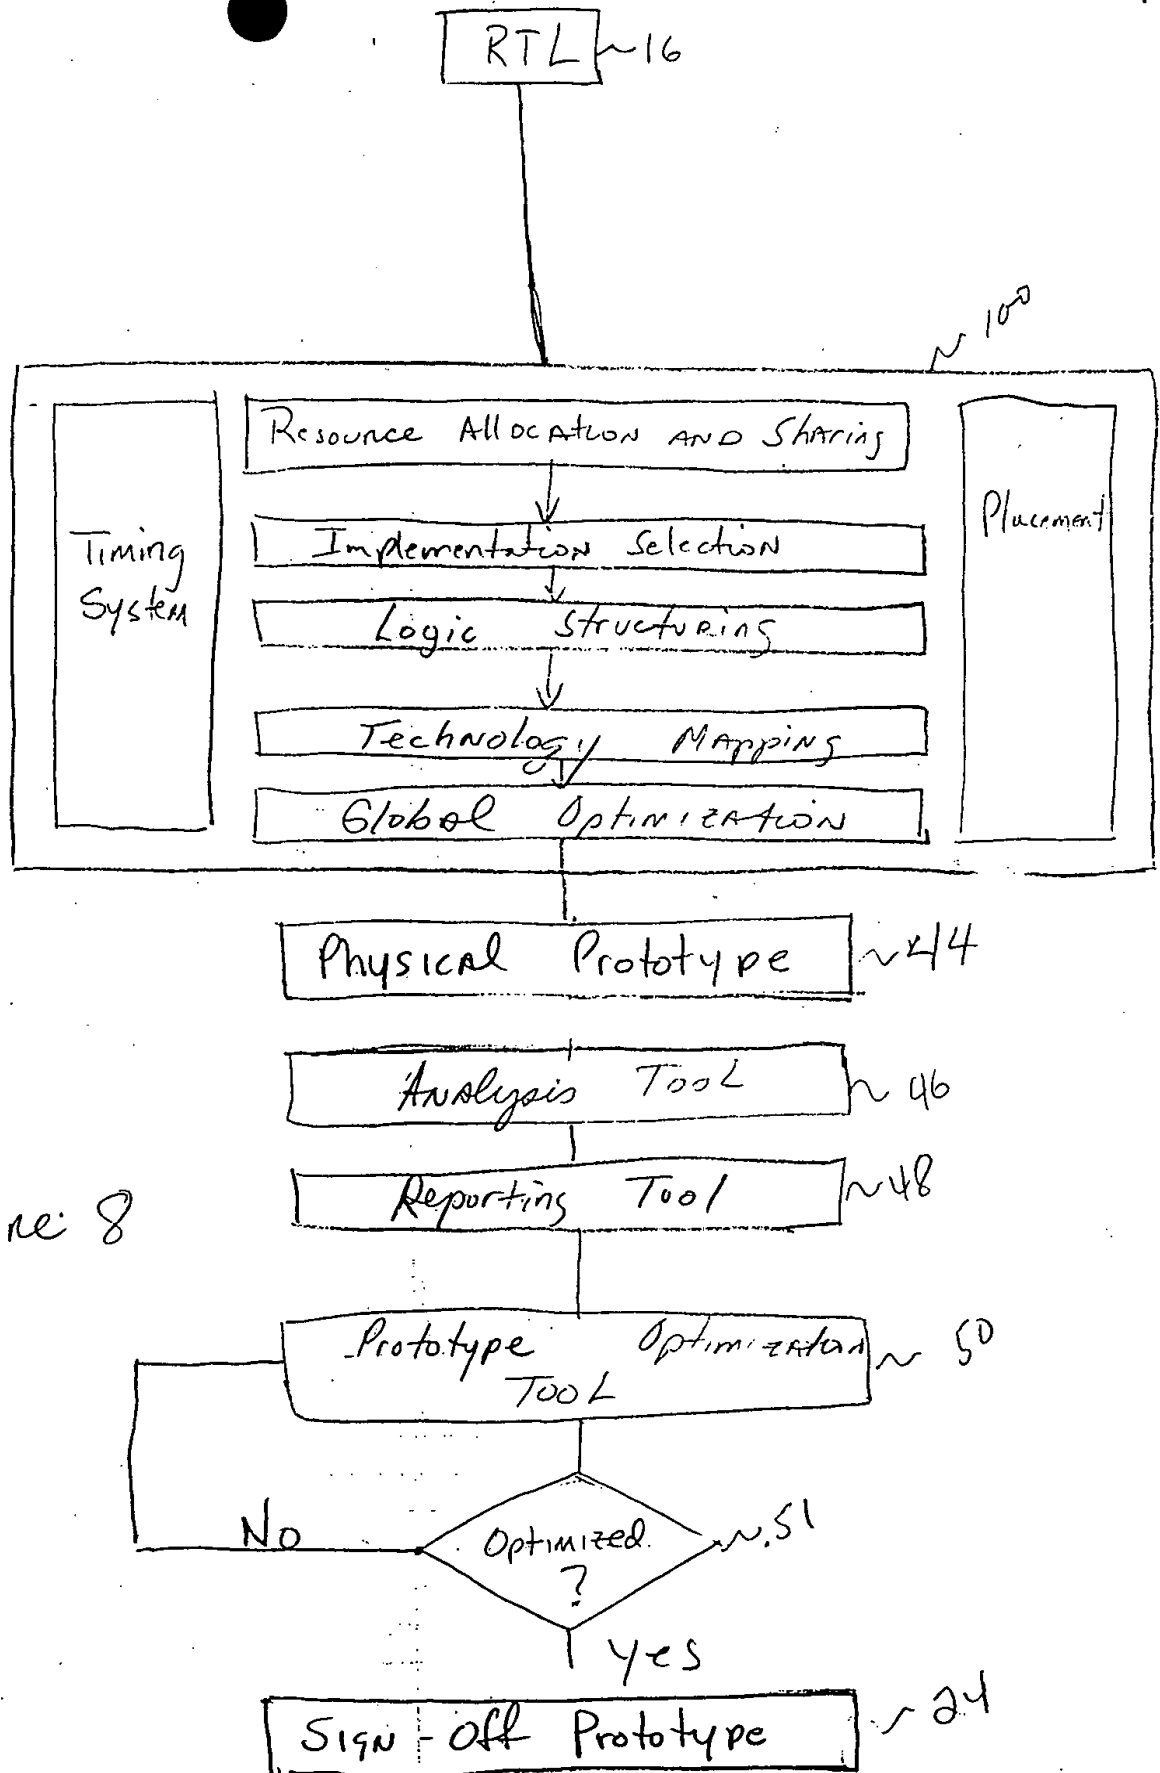 RTL 16
100
Resource Allocation and Sharing
Timing
System
Placement
Implementation Selection
Logic Structuring
Technology Mapping
Global Optimization
Physical Prototype 44
Analysis Tool 46
Reporting Tool 48
re: 8
Prototype Optimization
Tool
50
No
Optimized
?
51
yes
Sign-off Prototype 24